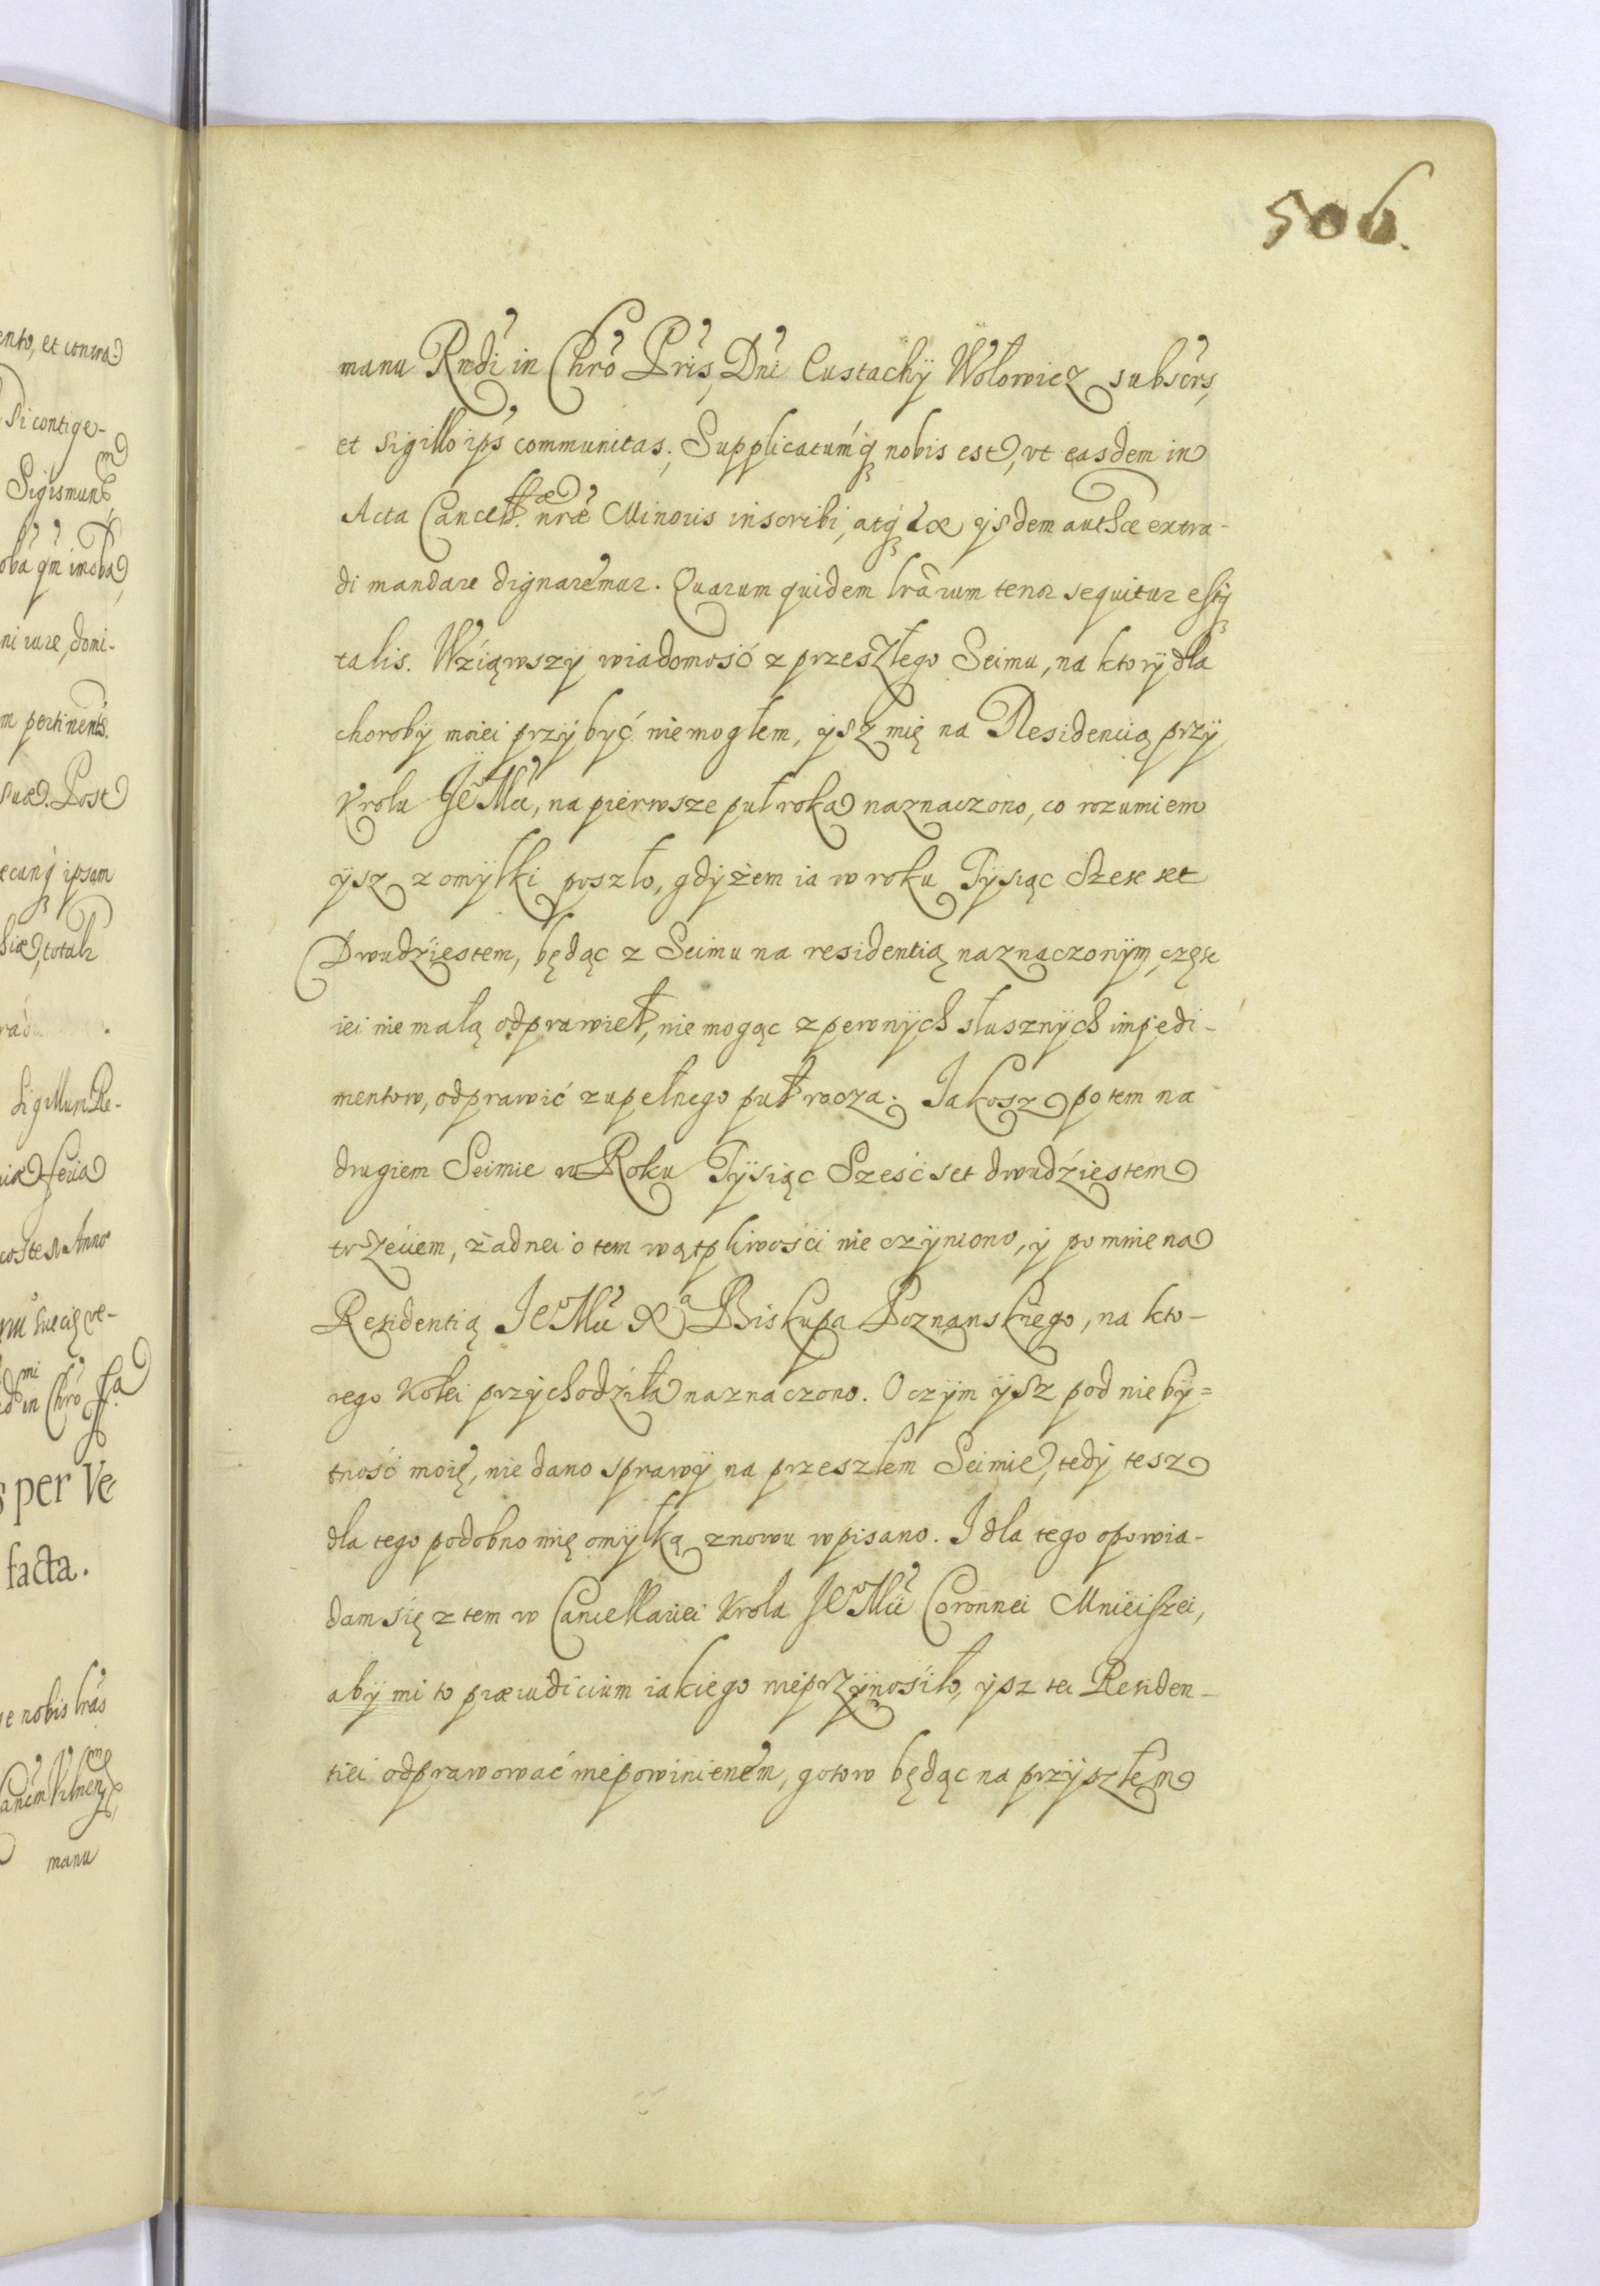 506.
manu Rndi in Chro Pris, Dni Eustachÿ Wołowicz subscrs,
et sigillo ips communitas; Supplicatumq nobis est, vt easdem in
Acta Cancell. nræ Minoris inscribi, atq ex ijsdem authœ extra-
di mandare dignaremur. Quarum quidem lrarum tenor sequitur estq
talis. Wziąwszÿ wiadomość z przeszłego Seimu, na ktorÿ dla
chorobÿ moiei przÿbyć niemogłem, ÿsz mię na Residencią przÿ
Krolu JeoMci, na pierwsze puł roka naznaczono, co rozumiem
ÿsz z omÿłki poszło, gdÿżem ia w roku Tÿsiąc Szesset
Dwudziestem, będąc z Seimu na residentią naznaczonÿm, częsc
iei nie małą odprawieł, nie mogąc z pewnÿch słusznÿch impedi-
mentow, odprawić zupełnego puł rocza. Jakosz potem na
drugiem Seimie w Roku Tÿsiąc Sześćset dwudźiestem
trzećiem, żadnei o tem wątpliwośći nie czÿniono, ÿ po mnie na
Residentią JeoMci Xa Biskupa Poznanskiego, na kto-
rego kolei przÿchodźiła naznaczono. O czÿm ÿsz pod niebÿ=
tność moię, nie dano sprawÿ na przeszłem Seimie, tedÿ tesz
dla tego podobno mię omÿłką znowu wpisano. J dla tego opowia-
dam się z tem w Cancellariei Krola JeoMci Coronnei Mnieiszei,
abÿ mi to præiudicium iakiego nieprzÿnośiło, ÿsz tei Residen-
tiei odprawować niepowinienem, gotow będąc na przÿszłem
ento, et contra
Si contige-
Sigismun
ni iure, domi-
m pertinents.
suæ. Post
ecunq ipsam
siæ, totali
Sigillum Re-
feria
coste Anno
in Chro
s per Ve
facta.
e nobis lras
manu